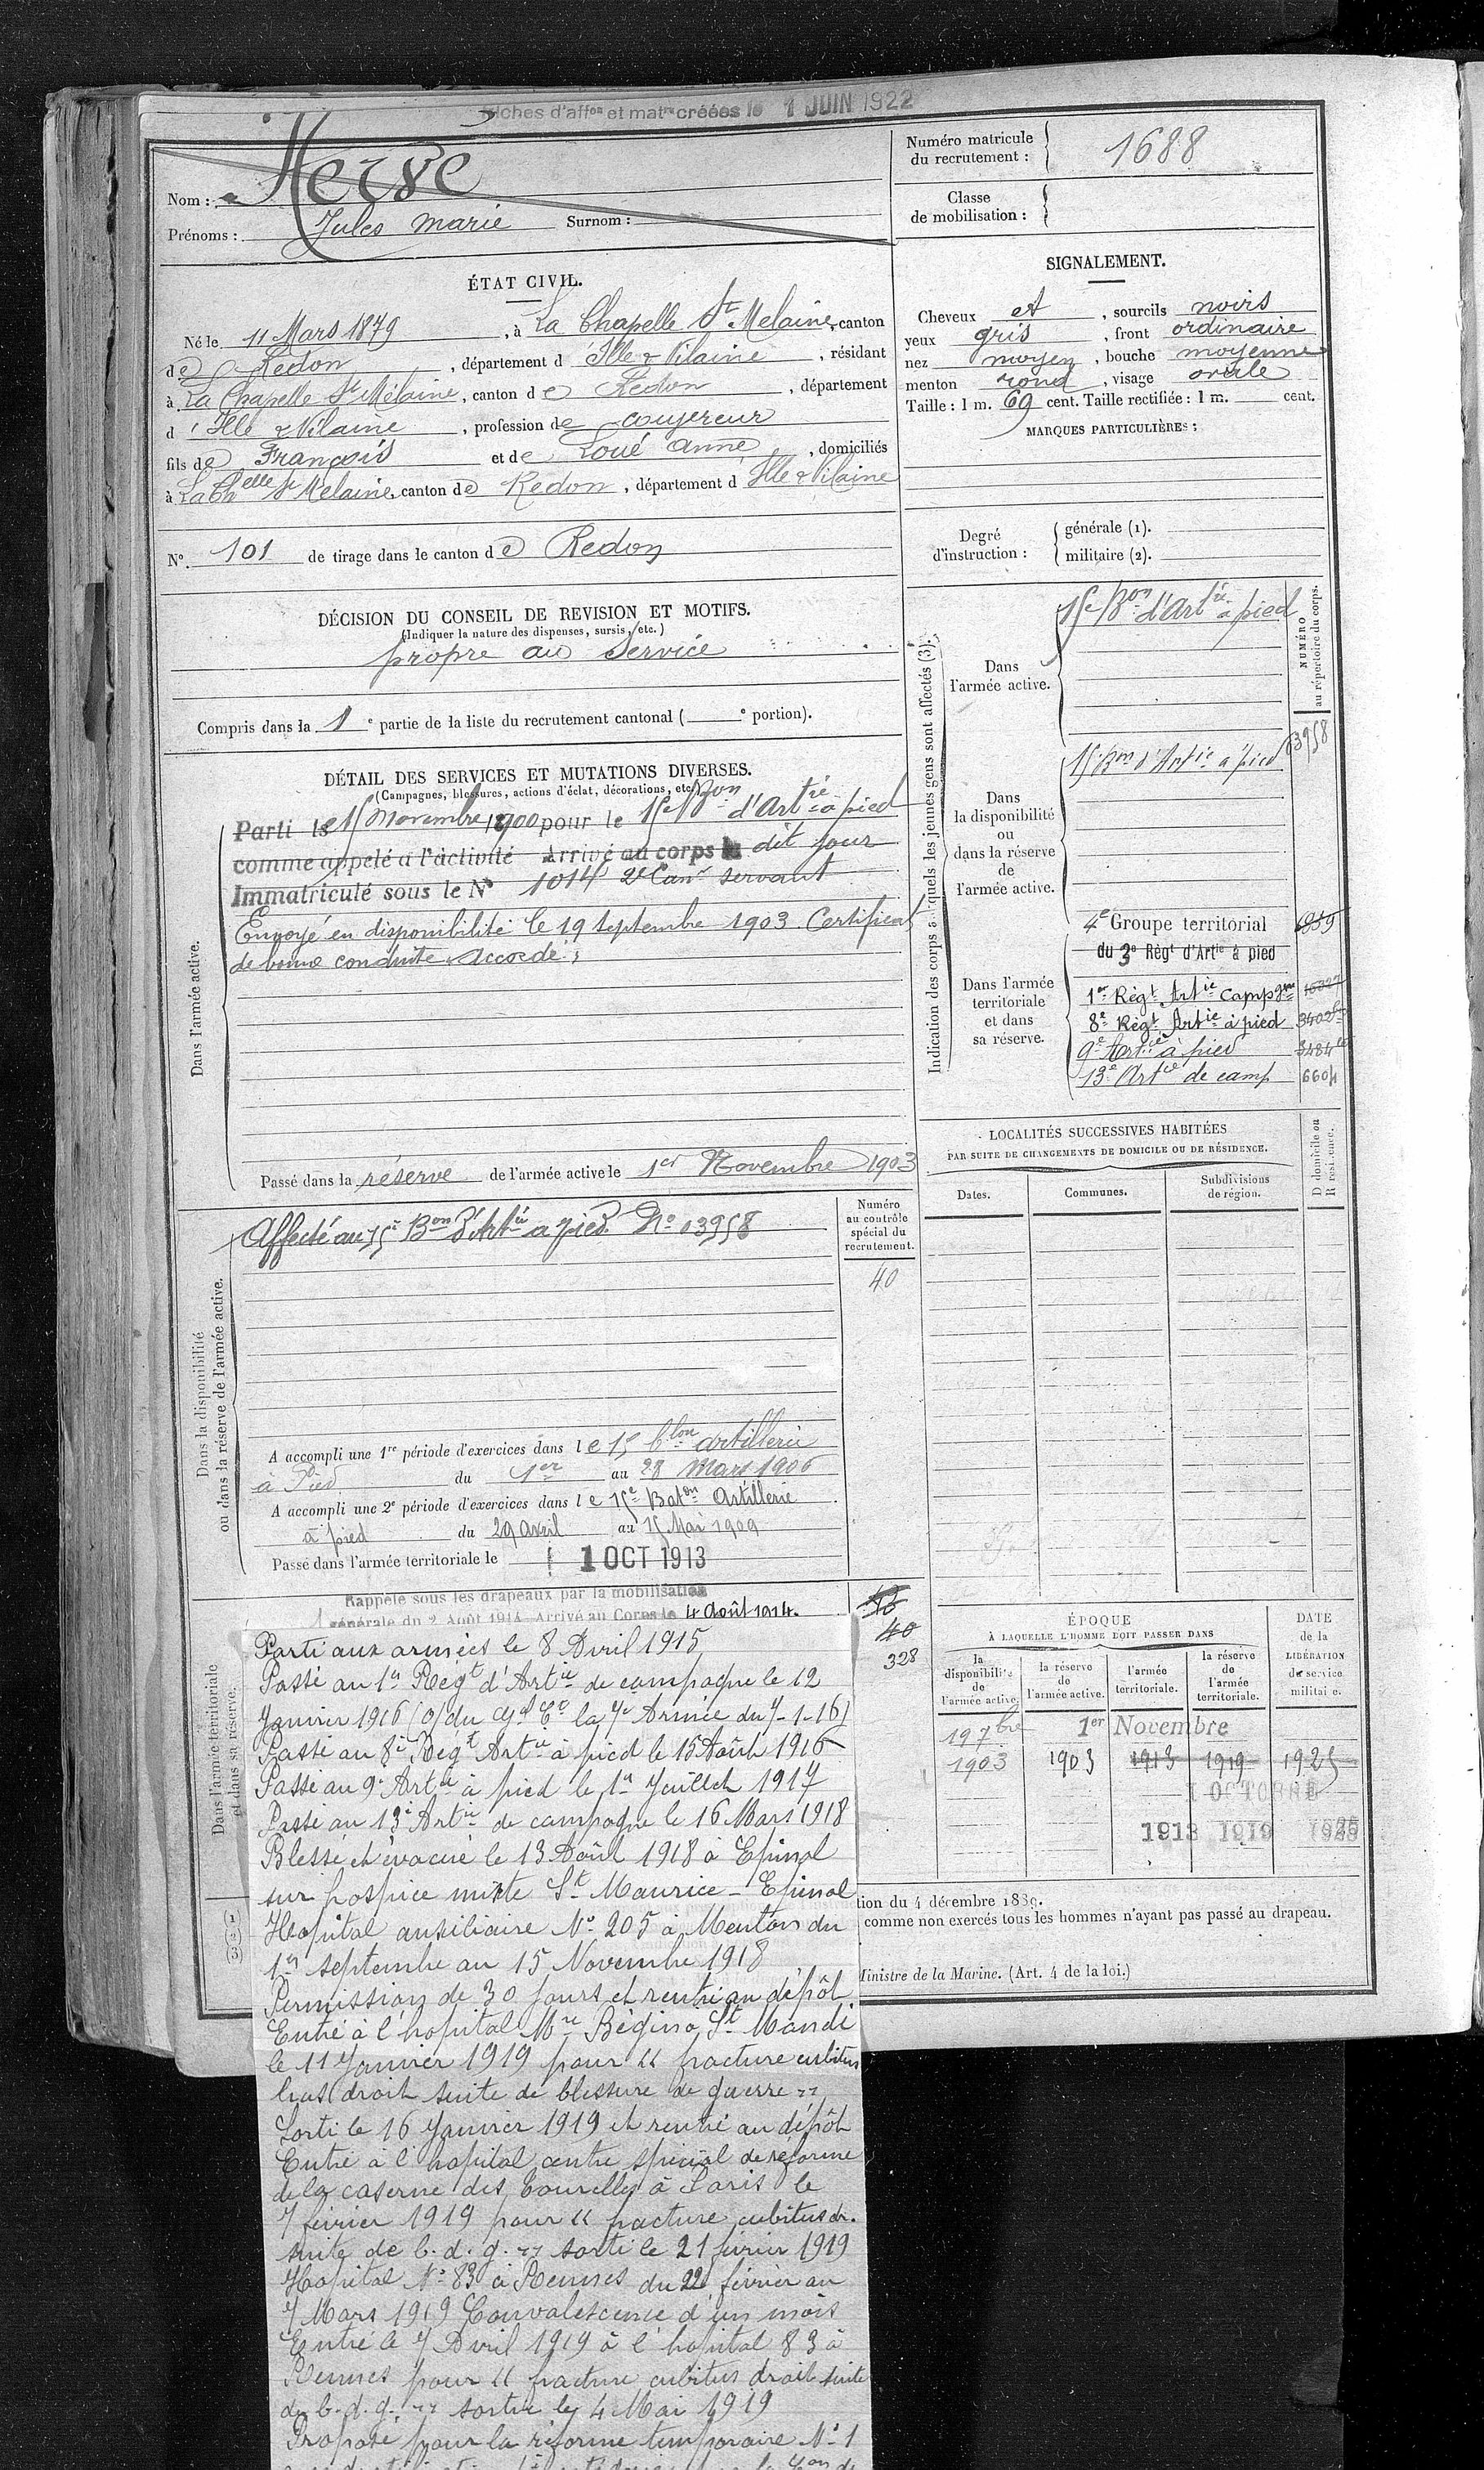 Fiches d'affon et matre créées le 1 JUIN 1922
Nom : Hervé
Prénoms : Jules Marie Surnom :
Numéro matricule du recrutement : 1688
Classe de mobilisation :
ÉTAT CIVIL.
Né le 11 Mars 1879, à La Chapelle St Melaine, canton
de Redon, département d'Ille & Vilaine, résidant
à La Chapelle St Mélaine, canton de Redon, département
d'Ille & Vilaine, profession de
fils de François et de Loué Anne, domiciliés
à La Chelle St Melaine, canton de Redon, département d'Ille & Vilaine
N° 101 de tirage dans le canton de Redon
SIGNALEMENT.
Cheveux et, sourcils noirs
yeux gris, front ordinaire
nez moyen, bouche moyenne
menton rond, visage ovale
Taille : 1 m. 69 cent. Taille rectifiée : 1 m. cent.
MARQUES PARTICULIÈRES :
Degré d'instruction : générale (1).
militaire (2).
DÉCISION DU CONSEIL DE REVISION ET MOTIFS.
(Indiquer la nature des dispenses, sursis, etc.)
propre au service
Compris dans la 1e partie de la liste du recrutement cantonal ( e portion).
DÉTAIL DES SERVICES ET MUTATIONS DIVERSES.
(Campagnes, blessures, actions d'éclat, décorations, etc.)
Dans l'armée active.
Parti le 15 Novembre 1900 pour le 15e Bon d'Artrie à pied
comme appelé à l'activité Arrivé au corps le dit jour
Immatriculé sous le N° 1014 2e Canr servant
Envoyé en disponibilité le 19 Septembre 1903 Certificat
de bonne conduite Accordé ;
Passé dans la réserve de l'armée active le 1er Novembre 1903
Indication des corps auxquels les jeunes gens sont affectés (3).
NUMÉRO au répertoire du corps.
Dans l'armée active.
15e Bon d'Artie à pied
Dans la disponibilité ou dans la réserve de l'armée active.
15e Bon d'Artie à pied 03958
Dans l'armée territoriale et dans sa réserve.
4e Groupe territorial
du 3e Régt d'Artie à pied
1er Régt Artie Campgne
8e Régt Artie à pied
9e Artie à pied
13e Artie de camp 6604
Dans la disponibilité ou dans la réserve de l'armée active.
Numéro au contrôle spécial du recrutement.
Affecté au 15e Bon d'Artie à pied N° 03958
40
A accompli une 1re période d'exercices dans le 15e blon artillerie
à Pied du 1er au 28 Mars 1906
A accompli une 2e période d'exercices dans le 15e Baton Artillerie
à pied du 29 avril au 15 Mai 1909
Passé dans l'armée territoriale le 1 OCT 1913
LOCALITÉS SUCCESSIVES HABITÉES
PAR SUITE DE CHANGEMENTS DE DOMICILE OU DE RÉSIDENCE.
Dates. Communes. Subdivisions de région. D domicile ou R résidence.
Dans l'armée territoriale et dans sa réserve.
Rappelé sous les drapeaux par la mobilisation
générale du 2 Août 1914. Arrivé au Corps le 4 Août 1914.
40
328
Parti aux armées le 8 Avril 1915
Passé au 1er Regt d'Artie de campagne le 12
Janvier 1916 (O/ du Gal Ct la 7e Armée du 7-1-16)
Passé au 8e Regt Artie à pied le 15 Août 1916
Passé au 9e Artie à pied le 1er Juillet 1917
Passé au 13e Artie de campagne le 16 Mars 1918
Blessé et évacué le 13 Août 1918 à Epinal
sur hospice mixte St Maurice - Epinal
Hopital auxiliaire N° 205 à Menton du
1er septembre au 15 Novembre 1918
Permission de 30 jours et rentré au dépôt
Entré à l'hopital Mre Bégin à St Mandé
le 11 Janvier 1919 pour « fracture cubitus
bras droit suite de blessure de guerre »
Sorti le 16 Janvier 1919 et rentré au dépôt
Entré à l'hopital centre spécial de reforme
de la caserne des Tourelles à Paris le
7 février 1919 pour « fracture cubitus dr.
suite de b. d. g. » sorti le 21 février 1919
Hopital N° 83 à Rennes du 22 février au
7 Mars 1919 Convalescence d'un mois
Entré le 7 Avril 1919 à l'hopital 83 à
Rennes pour « fracture cubitus droit suite
de b. d. g. » sorti le 4 Mai 1919
Proposé pour la réforme temporaire N° 1
ÉPOQUE
À LAQUELLE L'HOMME DOIT PASSER DANS
la disponibilité de l'armée active. la réserve de l'armée active. l'armée territoriale. la réserve de l'armée territoriale.
DATE de la LIBÉRATION du service militaire.
19 7bre 1er Novembre
1903 1903 1913 1919 1925
1 OCTOBRE
1913 1919 1925
(1)
(2)
(3)
tion du 4 décembre 1889.
comme non exercés tous les hommes n'ayant pas passé au drapeau.
Ministre de la Marine. (Art. 4 de la loi.)